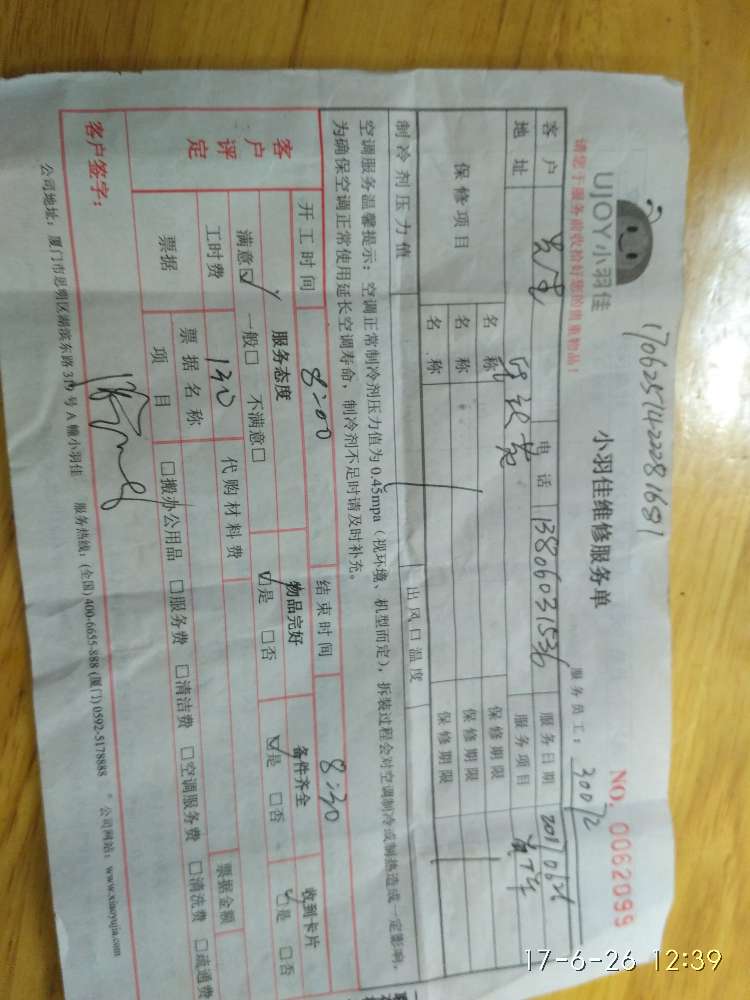 UJOY小羽佳
请您于服务前收拾好您的贵重物品！
170635142228168 1
小羽佳维修服务单
服务员工：30072
NO. 0062099
客户 电话 13806031536 服务日期 20170626
地址 服务项目
保修项目 名称 保修期限
名称 保修期限
名称 保修期限
制冷剂压力值 出风口温度
空调服务温馨提示：空调正常制冷剂压力值为0.45mpa（视环境、机型而定），拆装过程会对空调制冷或制热造成一定影响，
为确保空调正常使用延长空调寿命，制冷剂不足时请及时补充。
开工时间 8:00 结束时间 8:30
客户评定 服务态度 物品完好 备件齐全 收到卡片
满意☑ 一般□ 不满意□ ☑是 □否 ☑是 □否 ☑是 □否
工时费 130 代购材料费 票据金额
票据 票据名称
项目 □搬办公用品 □服务费 □清洁费 □空调服务费 □清洗费 □疏通费
客户签字：
公司地址：厦门市思明区湖滨东路319号A幢小羽佳 服务热线：(全国) 400-6655-888 (厦门) 0592-5178888 公司网站：www.xiaoyujia.com
17-6-26 12:39